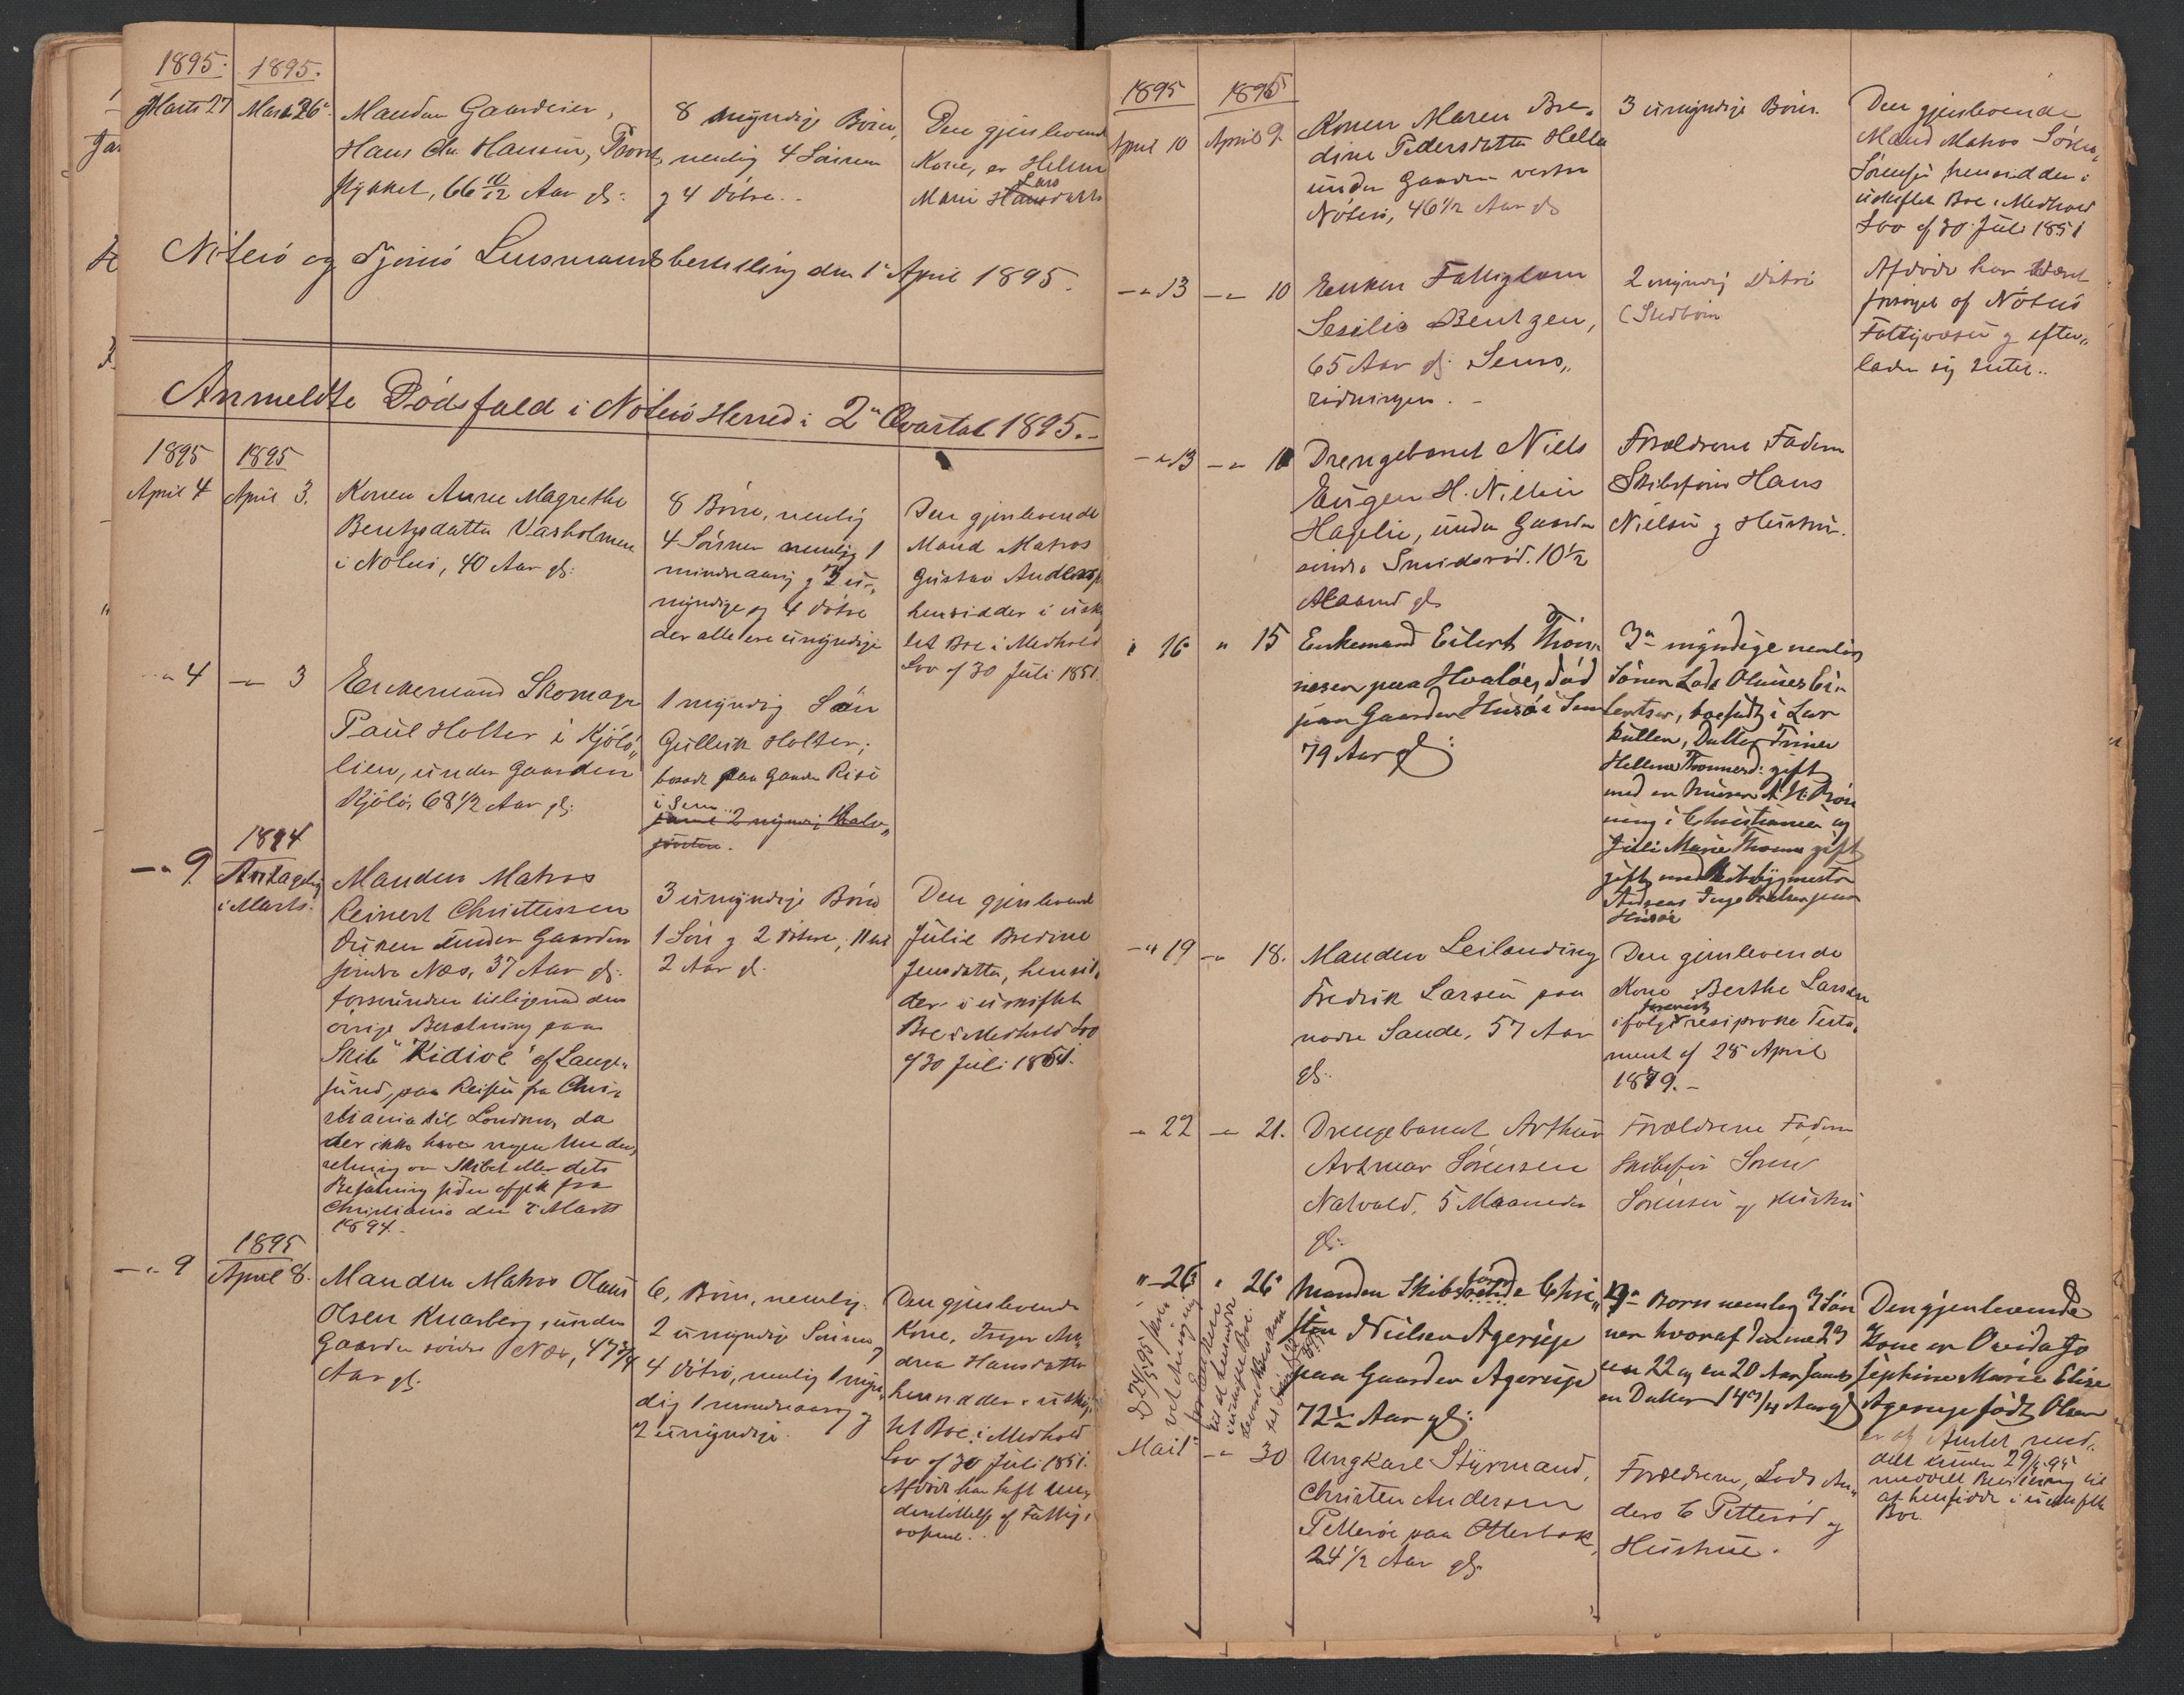 1895. 1895.
Marts 27 Marts 26. Manden Gaardeier,
Hans Chr. Hansen,
stykket, 66 10/12 Aar gl:
8 myndige Børn,
nemlig 4 Sønner
og 4 Døtre..
Den gjenlevende
Kone, er Helene
Marie Larsdatter
Nøterø og Tjømø Lensmandsbestilling den 1 April 1895.
Anmeldte Dødsfald i Nøterø Herred i 2" Qvartal 1895.-
1895 1895
April 4 April 3. Konen Anne Magrethe
Bentsdatter Vasholmen
i Nøterø, 40 Aar gl:
8 Børn, nemlig
4 Sønner nemlig 1
mindreaarig og 3 u-
myndige og 4 Døtre
der alle ere umyndige
Den gjenlevende
Mand Matros
Gustav Anderss.
hensidder i uskif
tet Boe i Medhold
Lov af 30 Juli 1851.
-"- 4 -"- 3 Enkemand Skomager
Paul Holter i Kjølø-
lien, under Gaarden
Kjølø, 68 1/2 Aar gl:
1 myndig Søn
Gullik Holter,
boende paa Gaarden Risø
i Sem
samt 2 myndig
1894
-"- 9. Antagelig
i Marts.
Manden Matros
Reinert Christensen
under Gaarden
søndre Næs, 37 Aar gl:
forsvunden tilligemed den
øvrige Besætning paa
Skib "Kidioe" af Lange-
sund, paa Reisen fra Chri-
stiania til London, da
der ikke haves nogen Under-
retning om Skibet eller dets
Besætning siden afgik fra
Christiania den 7 Marts
1894.
3 umyndige Børn
1 Søn og 2 Døtre, 11 til
2 Aar gl.
Den gjenlevende
Julie Bredine
Jensdatter, hensid-
der i uskiftet
Boe i Medhold Lov
af 30 Juli 1851.
1895
-"- 9 April 8. Manden Matros Olaus
Olsen Knarberg, under
Gaarden søndre Næs, 47 3/4
Aar gl:
6, Børn, nemlig
2 umyndige Sønner og
4 Døtre, nemlig 1 myn-
dig 1 mindreaarig og
2 umyndige.
Den gjenlevende
Kone, Inger An-
drea Hansdatter
hensidder i uskif-
tet Boe i Medhold
Lov af 30 Juli 1851.
Afdøde har havt Un-
derstøttelse af Fattig-
væsenet..
1895 1895
April 10 April 9. Konen Maren Bre-
dine Pedersdatter Hella
under Gaarden vestre
Nøterø, 46 1/2 Aar gl
3 umyndige Børn.
Den gjenlevende
Mand Matros Søren
Sørensen hensidder i
uskiftet Boe i Medhold
Lov af 30 Juli 1851
-"- 13 -"- 10 Enken Fattiglem
Sesilie Bentzen,
65 Aar gl: Sems-
ridningen.-
2 myndig Døtre
(Stedbørn
Afdøde har været
forsørget af Nøterø
Fattigvæsen og efter-
lader sig intet..
-"- 13 -"- 10 Drengebarnet Niels
Eugen H. Nielsen
Hagelie, under Gaarden
søndre Smidsrød. 10 1/2
Maaned gl
Forældrene Faderen
Skibsfører Hans
Nielsen og Hustru.
" 16 " 15 Enkemand Eilert Thøn-
nesen paa Hvaløe, død
paa Gaarden Husø i Sem
79 Aar gl:
3" myndige nemlig
Sønen Lods Olaus Ei-
lertsen, boesadt i Lar
kullen, Datter Trine
Helline Thønnesd: gift
med en
i Christiania og
Juli Marie Thønnes gift
gift med Skibsbygmester
Andreas Ingebretsen paa
Husøe
-"- 19 -"- 18. Manden Leilending
Fredrik Larsen paa
nodre Sande, 57 Aar
gl:
Den gjenlevende
Kone Berthe Larsen
ifølge resiproke Testa-
ment af 28 April
1879.-
-"- 22 -"- 21. Drengebarnet Arthur
Artmar Sørensen
Natvald, 5 Maaneder
gl:
Forældrene Faderen
Skibsfører Søren
Sørensen og Hustru
"- 26 " 26 Manden Skibsfører Chri-
sten Nielsen Agerøje
paa Gaarden Agerøje
72 1/2 Aar gl:
Børn nemlig 3 Søn
ner hvoraf
en 22 og en 20 Aar samt
en Datter 14 3/4 Aar gl
Den gjenlevende
Kone er Ovida Jo
sephine Marie Elise
Agerøje født Olsen
er af Amtet
under 29/5 95
meddelt Bevilling til
at hensidde i uskiftet
Boe.
Mai 1 -"- 30 Ungkarl Styrmand,
Christen Andersen
Petterøe paa Otterbæk,
24 1/2 Aar gl:
Forældrene, Lods An-
ders C Petterød og
Hustrue.